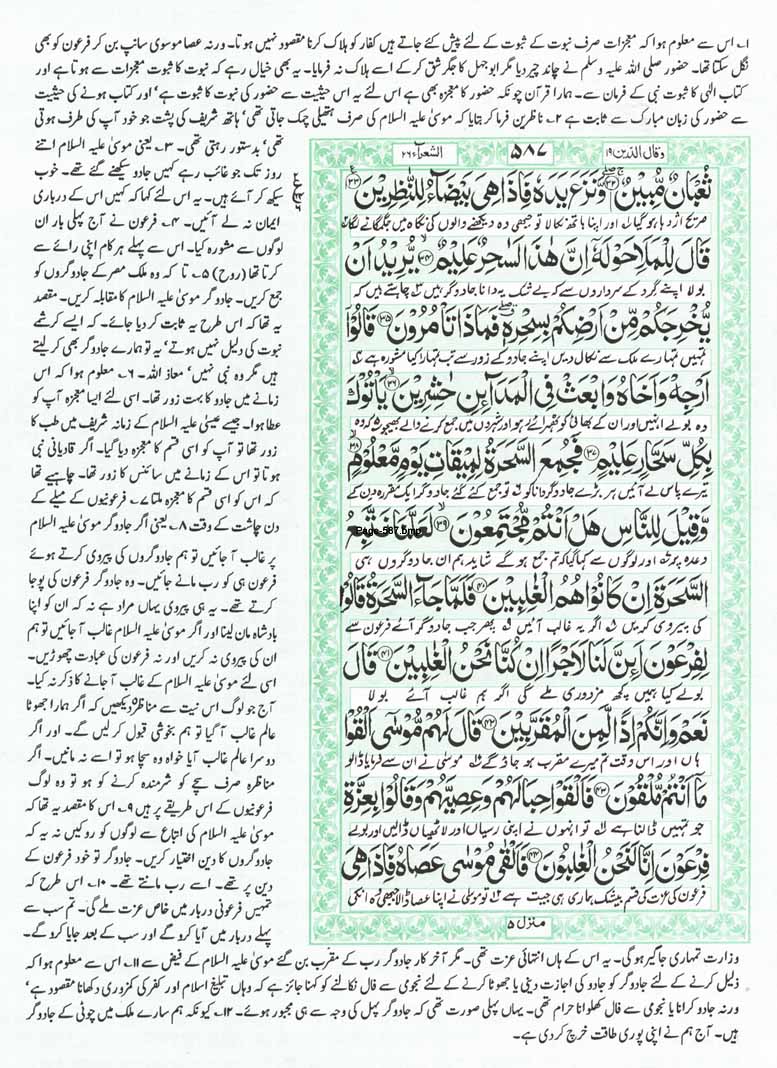 ۱۔ اس سے معلوم ہوا کہ معجزات صرف نبوت کے ثبوت کے لئے پیش کئے جاتے ہیں کفار کو ہلاک کرنا مقصود نہیں ہوتا۔ ورنہ عصا موسوی سانپ بن کر فرعون کو بھی
نگل سکتا تھا۔ حضور صلی اللہ علیہ وسلم نے چاند چیر دیا مگر ابوجہل کا جگر شق کر کے اسے ہلاک نہ فرمایا۔ یہ بھی خیال رہے کہ نبوت کا ثبوت معجزات سے ہوتا ہے اور
کتاب الٰہی کا ثبوت نبی کے فرمان سے۔ ہمارا قرآن چونکہ حضور کا معجزہ بھی ہے اس لئے یہ اس حیثیت سے حضور کی نبوت کا ثبوت ہے، اور کتاب ہونے کی حیثیت
سے حضور کی زبان مبارک سے ثابت ہے ۲۔ ناظرین فرما کر بتایا کہ موسیٰ علیہ السلام کی صرف ہتھیلی چمک جاتی تھی، ہاتھ شریف کی پشت جو خود آپ کی طرف ہوتی
وقال الذین ۱۹
۵۸۷
الشعراء ۲۶
ثُعْبَانٌ مُّبِيْنٌ ۚ۳۲ وَّنَزَعَ يَدَهٗ فَاِذَا هِيَ بَيْضَآءُ لِلنّٰظِرِيْنَ ۳۳
صریح اژدہا ہو گیا اور اپنا ہاتھ نکالا تو جبھی وہ دیکھنے والوں کی نگاہ میں جگمگانے لگا
قَالَ لِلْمَلَاِ حَوْلَهٗٓ اِنَّ هٰذَا لَسٰحِرٌ عَلِيْمٌ ۙ۳۴ يُّرِيْدُ اَنْ
بولا اپنے گرد کے سرداروں سے کہ بے شک یہ دانا جادوگر ہیں چاہتے ہیں کہ
يُّخْرِجَكُمْ مِّنْ اَرْضِكُمْ بِسِحْرِهٖ فَمَاذَا تَاْمُرُوْنَ ۳۵ قَالُوْٓا
تمہیں تمہارے ملک سے نکال دیں اپنے جادو کے زور سے تب تمہارا کیا مشورہ ہے
اَرْجِهْ وَاَخَاهُ وَابْعَثْ فِي الْمَدَآىِٕنِ حٰشِرِيْنَ ۙ۳۶ يَاْتُوْكَ
وہ بولے انہیں اور ان کے بھائی کو ٹھہرائے رہو اور شہروں میں جمع کرنے والے بھیجو کہ وہ
بِكُلِّ سَحَّارٍ عَلِيْمٍ ۳۷ فَجُمِعَ السَّحَرَةُ لِمِيْقَاتِ يَوْمٍ مَّعْلُوْمٍ ۙ۳۸
تیرے پاس لے آئیں ہر بڑے جادوگر دانا کو تو جمع کئے گئے جادوگر ایک مقررہ دن کے
وَّقِيْلَ لِلنَّاسِ هَلْ اَنْتُمْ مُّجْتَمِعُوْنَ ۙ۳۹ لَعَلَّنَا نَتَّبِعُ
Page-587.bmp
وعدہ پر اور لوگوں سے کہا گیا کیا تم جمع ہو گے شاید ہم ان جادوگروں ہی
السَّحَرَةَ اِنْ كَانُوْا هُمُ الْغٰلِبِيْنَ ۴۰ فَلَمَّا جَآءَ السَّحَرَةُ قَالُوْا
کی پیروی کریں اگر یہ غالب آئیں پھر جب جادوگر آئے فرعون سے
لِفِرْعَوْنَ اَىِٕنَّ لَنَا لَاَجْرًا اِنْ كُنَّا نَحْنُ الْغٰلِبِيْنَ ۴۱ قَالَ
بولے کیا ہمیں کچھ مزدوری ملے گی اگر ہم غالب آئے بولا
نَعَمْ وَاِنَّكُمْ اِذًا لَّمِنَ الْمُقَرَّبِيْنَ ۴۲ قَالَ لَهُمْ مُّوْسٰٓى اَلْقُوْا
ہاں اور اس وقت تم میرے مقرب ہو جاؤ گے موسیٰ نے ان سے فرمایا ڈالو
مَآ اَنْتُمْ مُّلْقُوْنَ ۴۳ فَاَلْقَوْا حِبَالَهُمْ وَعِصِيَّهُمْ وَقَالُوْا بِعِزَّةِ
جو تمہیں ڈالنا ہے تو انہوں نے اپنی رسیاں اور لاٹھیاں ڈالیں اور بولے
فِرْعَوْنَ اِنَّا لَنَحْنُ الْغٰلِبُوْنَ ۴۴ فَاَلْقٰى مُوْسٰى عَصَاهُ فَاِذَا هِيَ
فرعون کی عزت کی قسم بیشک ہماری ہی جیت ہے تو موسیٰ نے اپنا عصا ڈالا جبھی وہ انکی
منزل ۵
تھی، بدستور رہتی تھی۔ ۳۔ یعنی موسیٰ علیہ السلام اتنے
روز تک جو غائب رہے کہیں جادو سیکھنے گئے تھے۔ خوب
سیکھ کر آئے ہیں۔ یہ اس لئے کہا کہ کہیں اس کے درباری
ایمان نہ لے آئیں۔ ۴۔ فرعون نے آج پہلی بار ان
لوگوں سے مشورہ کیا۔ اس سے پہلے ہر کام اپنی رائے سے
کرتا تھا (روح) ۵۔ تا کہ وہ ملک مصر کے جادوگروں کو
جمع کریں۔ جادوگر موسیٰ علیہ السلام کا مقابلہ کریں۔ مقصد
یہ تھا کہ اس طرح یہ ثابت کر دیا جائے۔ کہ ایسے کرشمے
نبوت کی دلیل نہیں ہوتے، یہ تو ہمارے جادوگر بھی کر لیتے
ہیں مگر وہ نبی نہیں، معاذ اللہ۔ ۶۔ معلوم ہوا کہ اس
زمانے میں جادو کا بہت زور تھا۔ اسی لئے ایسا معجزہ آپ کو
عطا ہوا۔ جیسے عیسیٰ علیہ السلام کے زمانہ شریف میں طب کا
زور تھا تو آپ کو اسی قسم کا معجزہ دیا گیا۔ اگر قادیانی نبی
ہوتا تو اس کے زمانے میں سائنس کا زور تھا۔ چاہیے تھا
کہ اس کو اسی قسم کا معجزہ ملتا ۷۔ فرعونیوں کے میلے کے
دن چاشت کے وقت ۸۔ یعنی اگر جادوگر موسیٰ علیہ السلام
پر غالب آ جائیں تو ہم جادوگروں کی پیروی کرتے ہوئے
فرعون ہی کو رب مانے جائیں۔ وہ جادوگر فرعون کی پوجا
کرتے تھے۔ یہ ہی پیروی یہاں مراد ہے نہ کہ ان کو اپنا
بادشاہ مان لینا اور اگر موسیٰ علیہ السلام غالب آ جائیں تو ہم
ان کی پیروی نہ کریں اور نہ فرعون کی عبادت چھوڑیں۔
اسی لئے موسیٰ علیہ السلام کے غالب آ جانے کا ذکر نہ کیا۔
آج جو لوگ اس نیت سے مناظرہ دیکھیں کہ اگر ہمارا جھوٹا
عالم غالب آ گیا تو ہم بخوشی قبول کر لیں گے۔ اور اگر
دوسرا عالم غالب آیا خواہ وہ سچا ہو تو اسے نہ مانیں۔ اگر
مناظرہ صرف سچے کو شرمندہ کرنے کو ہو تو وہ لوگ
فرعونیوں کے اس طریقے پر ہیں ۹۔ اس کا مقصد یہ تھا کہ
موسیٰ علیہ السلام کی اتباع سے لوگوں کو روکیں نہ یہ کہ
جادوگروں کا دین اختیار کریں۔ جادوگر تو خود فرعون کے
دین پر تھے۔ اسے رب مانتے تھے۔ ۱۰۔ اس طرح کہ
تمہیں فرعونی دربار میں خاص عزت ملے گی۔ تم سب سے
پہلے دربار میں آیا کرو گے اور سب کے بعد جایا کرو گے۔
وزارت تمہاری جاگیر ہوگی۔ یہ اس کے ہاں انتہائی عزت تھی۔ مگر آخر کار جادوگر رب کے مقرب بن گئے موسیٰ علیہ السلام کے فیض سے ۱۱۔ اس سے معلوم ہوا کہ
ذلیل کرنے کے لئے جادوگر کو جادو کی اجازت دینی یا جھوٹا کرنے کے لئے نجومی سے فال نکالنے کو کہنا جائز ہے کہ وہاں تبلیغ اسلام اور کفر کی کمزوری دکھانا مقصود ہے،
ورنہ جادو کرانا یا نجومی سے فال کھلوانا حرام تھی۔ یہاں پہلی صورت تھی کہ جادوگر پہل کی وجہ سے ہی مجبور ہوئے۔ ۱۲۔ کیونکہ ہم سارے ملک میں چوٹی کے جادوگر
ہیں۔ آج ہم نے اپنی پوری طاقت خرچ کر دی ہے۔